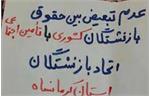 عدم تبعیض بین حقوق
بازنشستگان کشوری با تامین اجتماعی
اتحاد بازنشستگان
استان کرمانشاه